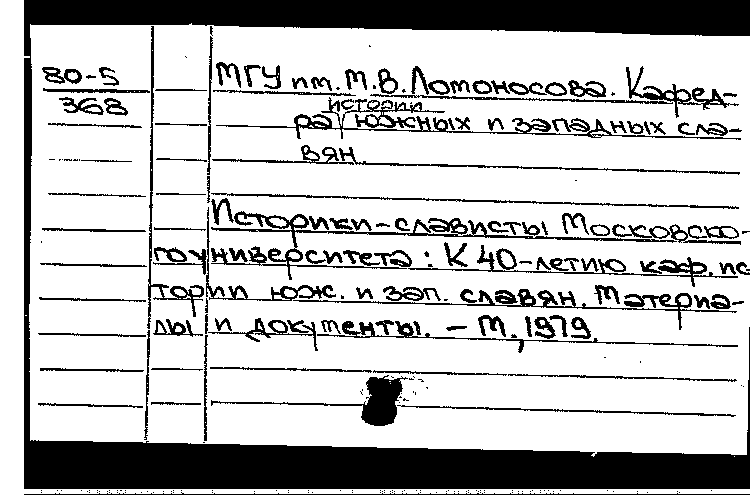 80-5
368
МГУ им. М.В. Ломоносова. Кафед-
истории
ра южных и западных сла-
вян.
Историки-слависты Московско-
го университета: К 40-летию каф. ис
тории юж. и зап. славян. Материа-
лы и документы. – М., 1979.